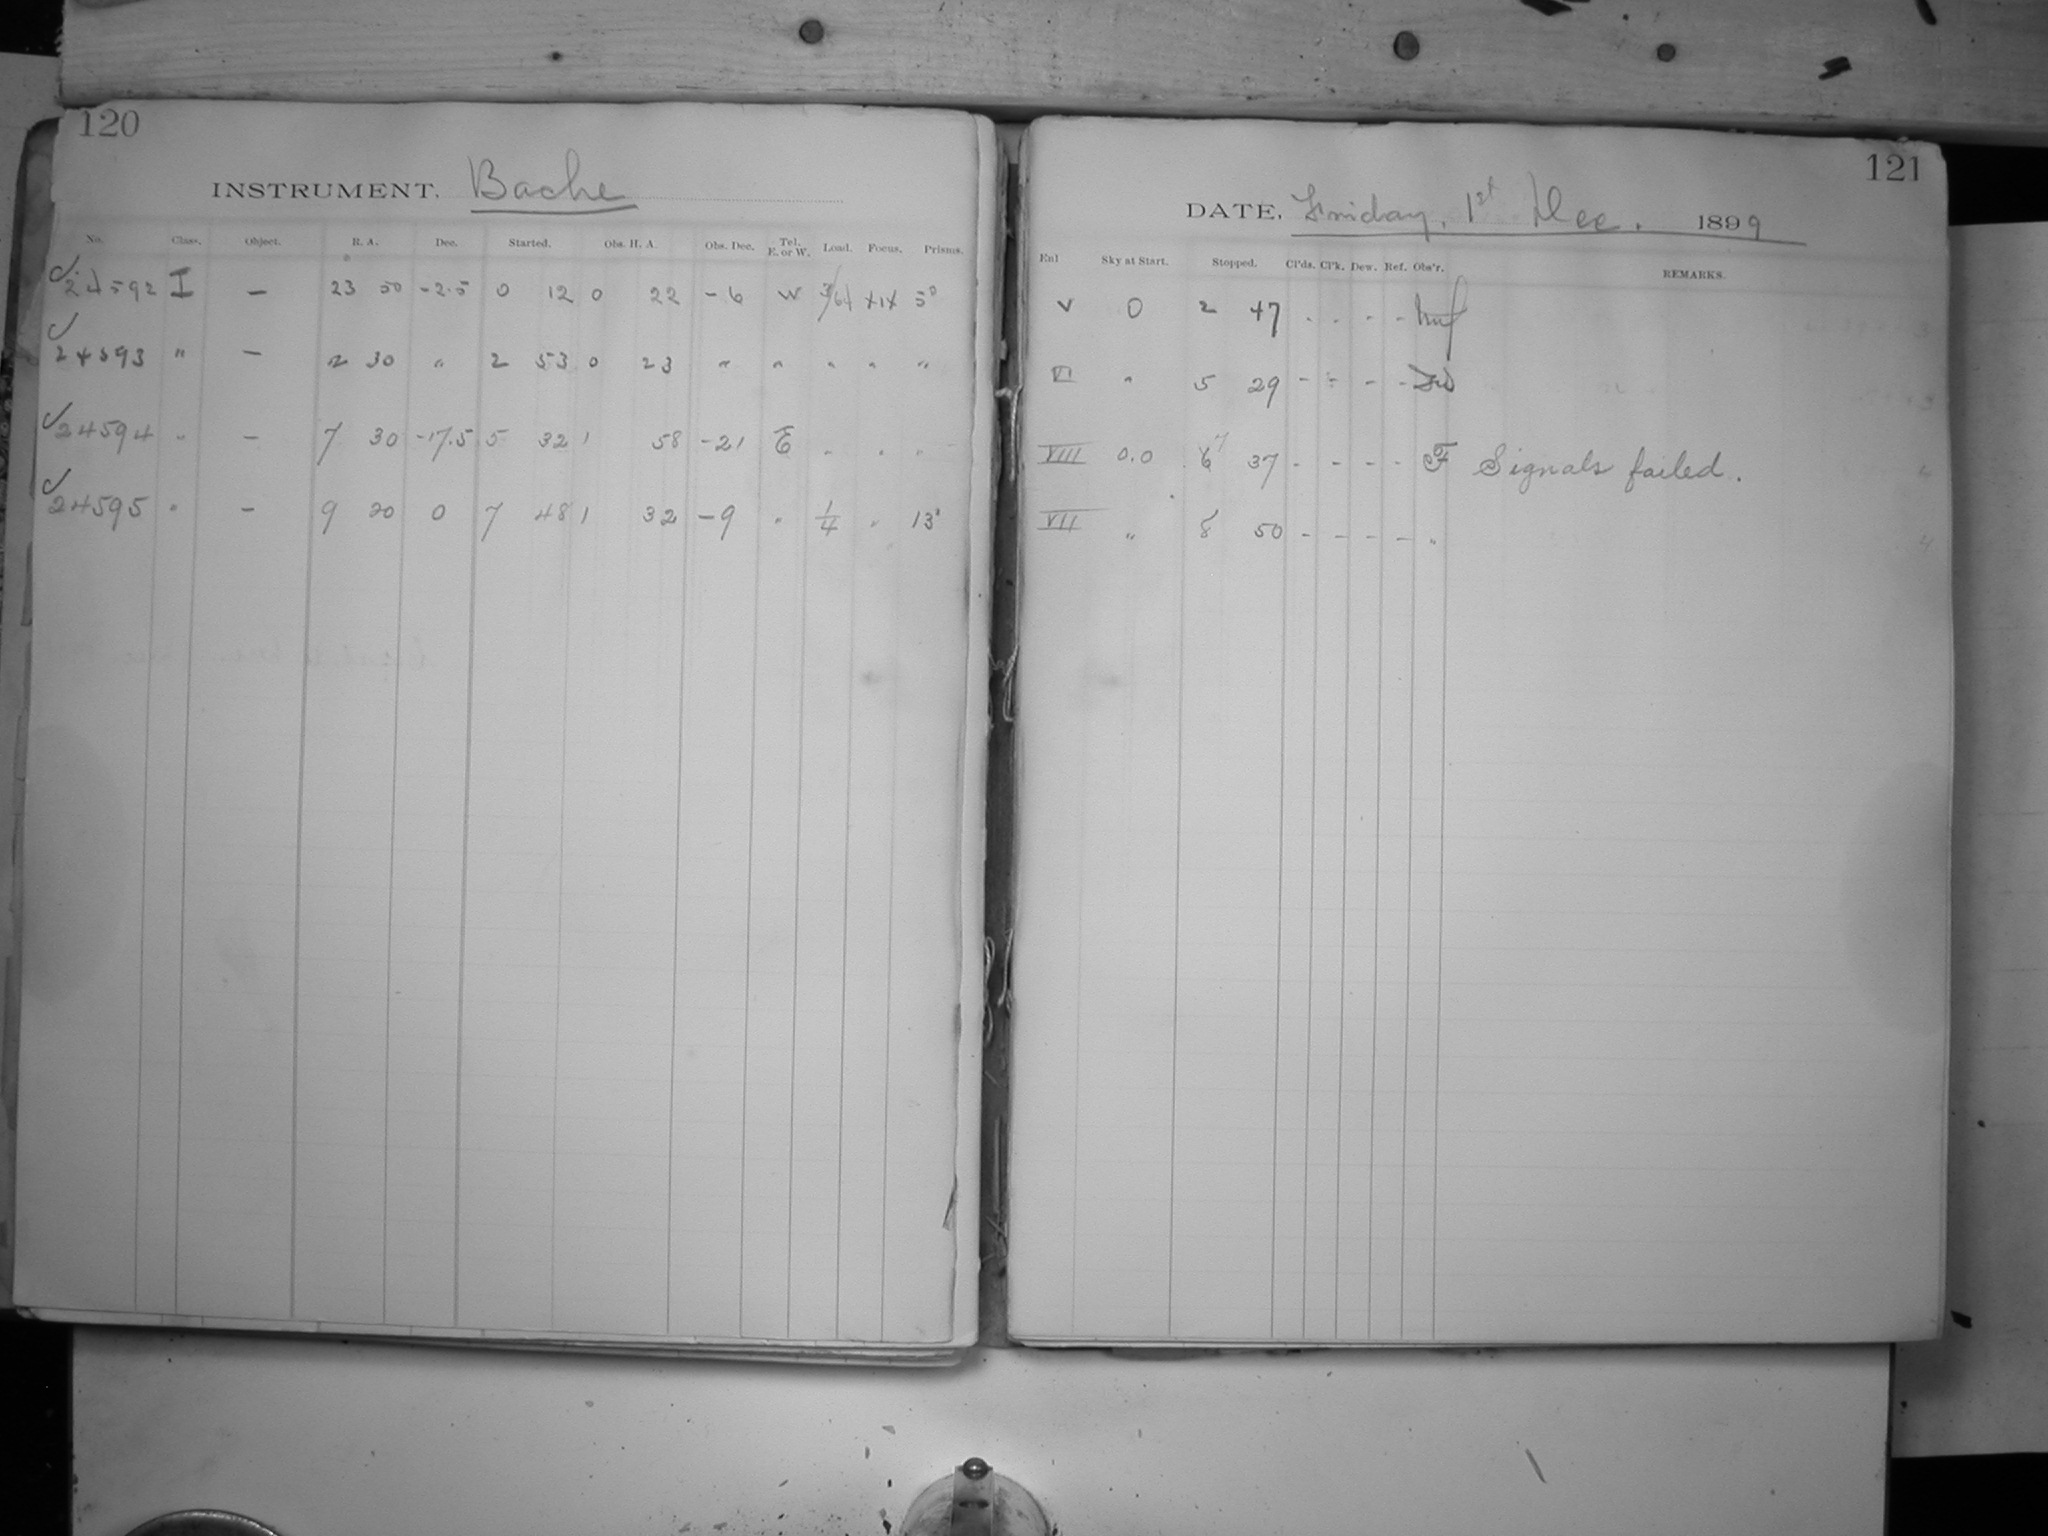 120
INSTRUMENT. Bache
No. Class. Object. R. A. Dec. Started. Obs. H. A. Obs. Dec. Tel. E. or W. Load. Focus. Prisms.
24592 I — 23 50 -2.5 0 12 0 22 -6 W 5°
24593 " — 2 30 " 2 53 0 23 " " " " "
24594 " — 7 30 -17.5 5 32 1 58 -21 E " " "
24595 " — 9 20 0 7 48 1 32 -9 " 1/4 " 13°
121
DATE. Friday, 1st Dec. 1899
Enl Sky at Start. Stopped. Cl'ds. Cl'k. Dew. Ref. Obs'r. REMARKS.
V 0 2 47 - - - -
VI " 5 29 - - - -
VIII 0.0 7 37 - - - - F Signals failed.
VII " 8 50 - - - - "